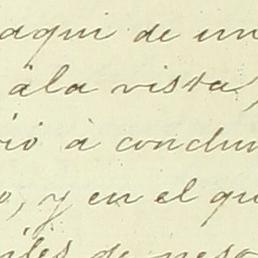 aqui de un
àla vista,
ió à conclui
o, y en el qu
iles de peso